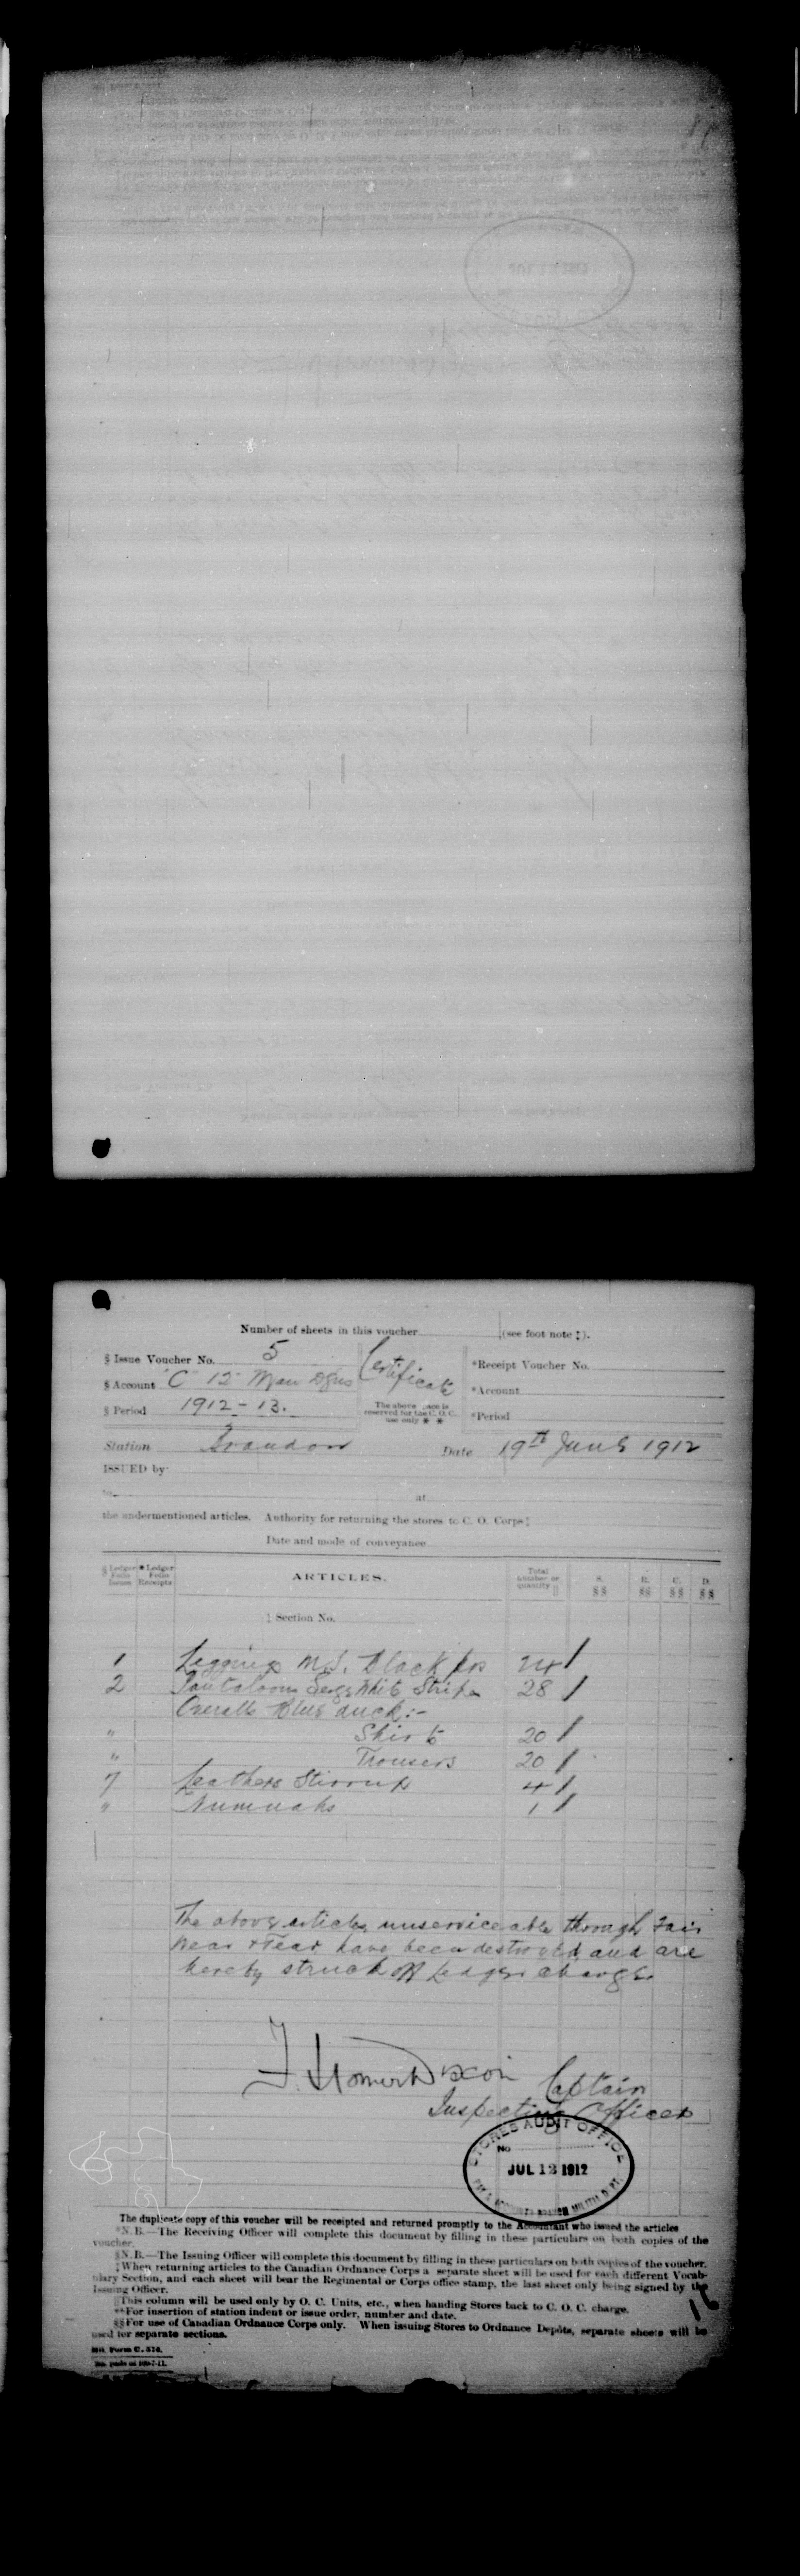 Number of sheets in this voucher (see foot note ‡).
§ Issue Voucher No. 5 Certificate *Receipt Voucher No.
§ Account "C" 12 Man Dgns *Account
§ Period 1912-13. The above space is reserved for the C. O. C. use only * * *Period
Station Brandon Date 19th June 1912
ISSUED by
to at
the undermentioned articles. Authority for returning the stores to C. O. Corps‡
Date and mode of conveyance
§ Ledger Folio Issues *Ledger Folio Receipts ARTICLES. Total number or quantity S. §§ R. §§ C. §§ D. §§
‡ Section No.
1 Leggings M.S. black prs 24 /
2 Pantaloons Serge White Stripe 28 /
Overalls Blue duck:-
" Shirts 20 /
" Trousers 20 /
7 Leathers Stirrup 4 /
" Numnahs 1 /
The above articles unserviceable through Fair
Wear & Tear have been destroyed and are
hereby struck off Ledger charge.
F. Homer Dixon Captain
Inspecting Officer
STORES AUDIT OFFICE
No
JUL 13 1912
The duplicate copy of this voucher will be receipted and returned promptly to the Accountant who issued the articles
*N.B.—The Receiving Officer will complete this document by filling in these particulars on both copies of the
voucher.
§N.B.—The Issuing Officer will complete this document by filling in these particulars on both copies of the voucher.
‡When returning articles to the Canadian Ordnance Corps a separate sheet will be used for each different Vocab-
ulary Section, and each sheet will bear the Regimental or Corps office stamp, the last sheet only being signed by the
Issuing Officer.
This column will be used only by O. C. Units, etc., when handing Stores back to C. O. C. charge.
**For insertion of station indent or issue order, number and date.
§§For use of Canadian Ordnance Corps only. When issuing Stores to Ordnance Depôts, separate sheets will be
used for separate sections.
16
Mil. Form C. 378.